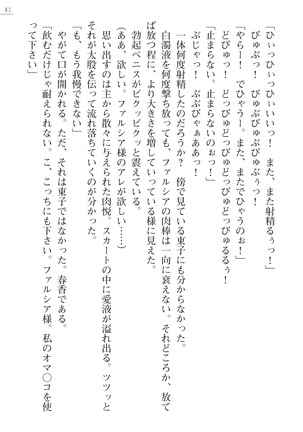 41
「ひぃっひぃっひぃいいっ！　また、また射精るぅっ！」
　びゅぶっ！　びゅぶびゅぶびゅぶぅっ！
「やらー！　でひゃう―。また、またでひゃうのぉ！」
　どびゅっ！　どっびゅどっびゅどっびゅるるぅ！
「止まらない。止まらないのぉ！」
　ぶじゃっ！　ぶぶびゃぁああっ！
　一体何度射精したのだろうか？　傍で見ている東子にも分からなかった。
　白濁液を何度撃ち放っても、ファルシアの肉棒は一向に衰えない。それどころか、放て
ば放つ程に、より大きさを増していっている様に見えた。
　勃起ペニスがビクッビクッと震えている。
（ああ、欲しい。ファルシア様のアレが欲しい……）
　思い出すのは主から散々に与えられた肉悦。スカートの中に愛液が溢れ出る。ツツッと
それが太股を伝って流れ落ちていくのが分かった。
「も、もう我慢できない」
　やがて口が開かれる。ただ、それは東子ではなかった。春香である。
「飲むだけじゃ耐えられない。こ、こっちにも下さい。ファルシア様。私のオマ〇コを使
って下さい」